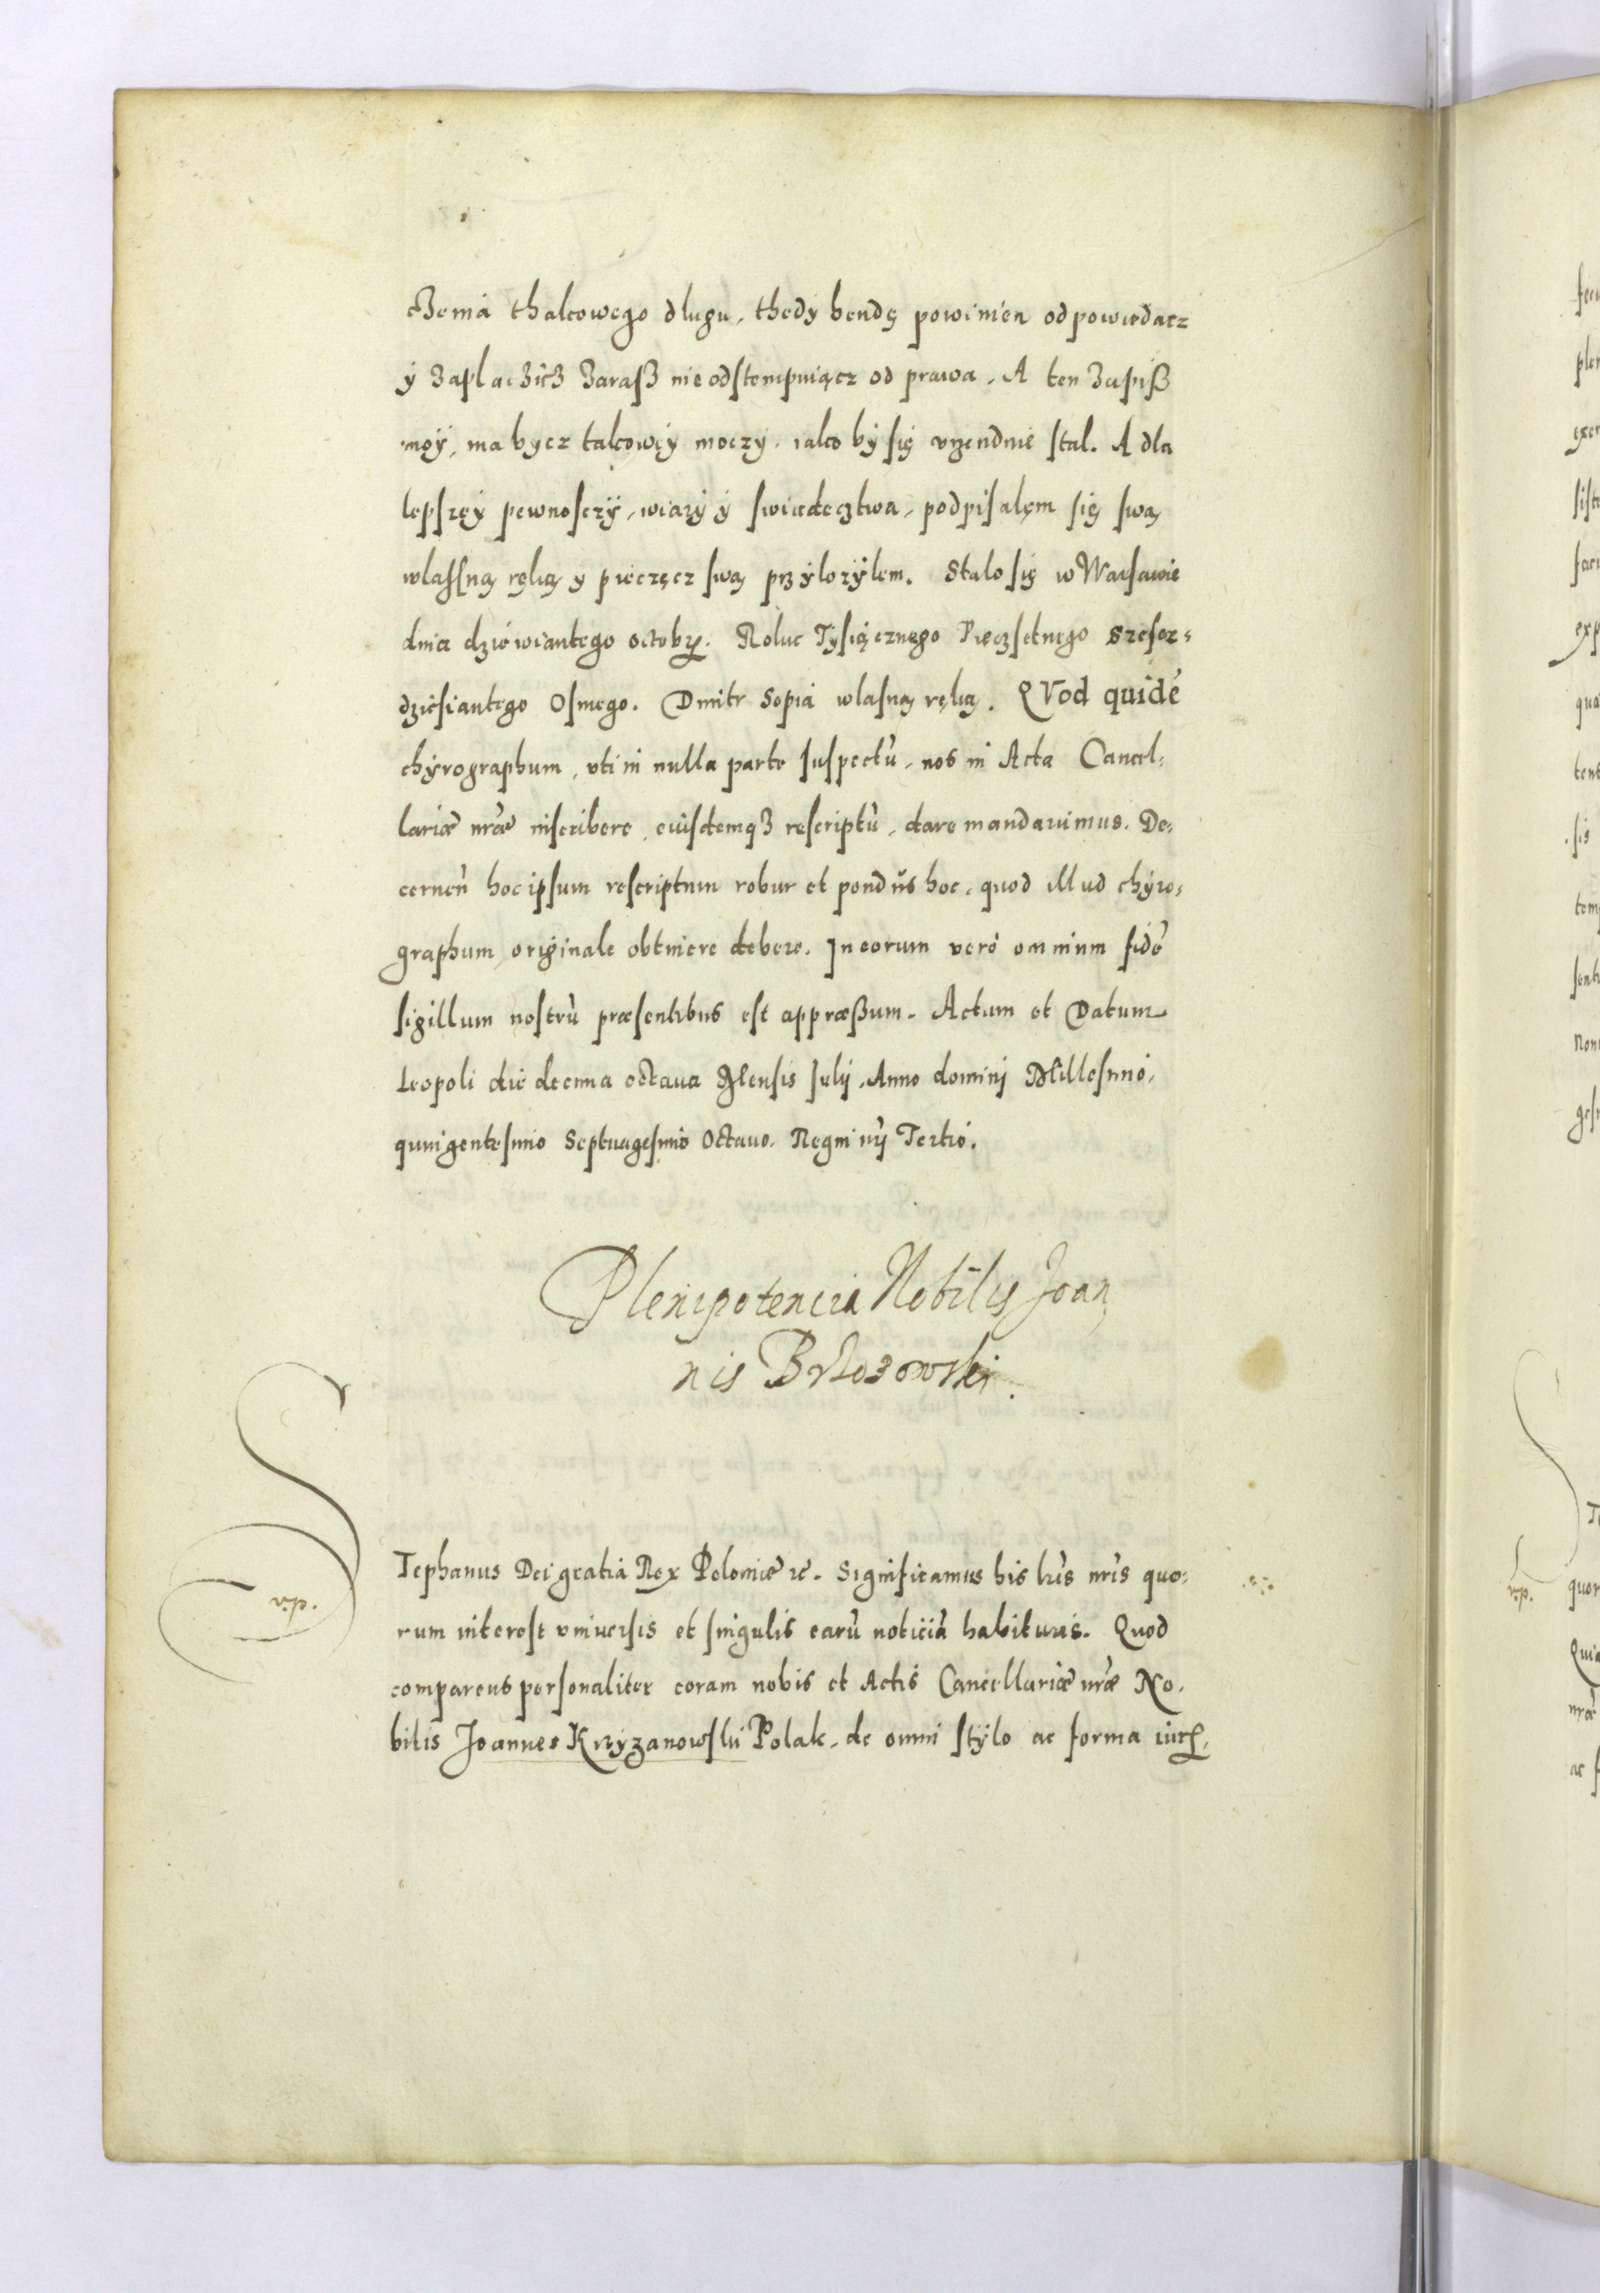 czenia thakowego dlugu, thedy bendę powinien odpowiedacz
y zaplaczicz zaraß nie odstempuiącz od prawa. A ten zapiß
moÿ, ma bycz takowęÿ moczÿ, iako bÿ się vrzendnie stal. A dla
lepszęÿ pewnosczÿ, wiarÿ ÿ swiadecztwa, podpisalęm się swą
wlassną ręką y pieczęcz swą przÿlozÿlem. Stalo się w Warsawie
dnia dziewiantego octobr. Roku Tysiącznego Pięczsetnego Szescz-
dziesiantego Osmego. Dmitr Sopia wlasną ręką. QVod quidē
chÿrographum, vti in nulla parte suspectū, nos in Acta Cancel-
lariæ nr̄æ inscribere, eiusdemqȝ rescriptū, dare mandauimus. De-
cernen̄ hoc ipsum rescriptum robur et pondus hoc, quod illud chÿro-
graphum originale obtinere debere. In eorum vero omnium fidē
sigillum nostrū præsentibus est appræßum. Actum et Datum
Leopoli die decima octaua Mensis Iulij. Anno domini Millesimo,
quingentesimo Septuagesimo Octauo. Regni nr̄j Tertio.
Plenipotencia Nobilis Joan
nis Brzozowski.
STephanus Dei gratia Rex Poloniæ etc. Significamus his lr̄is nr̄is quo-
rum interest vniuersis et singulis earū noticiā habituris. Quod
comparens personaliter coram nobis et Actis Cancellariæ nr̄æ No-
bilis Joannes Krzyzanowski Polak, de omni stÿlo ac forma iuris,